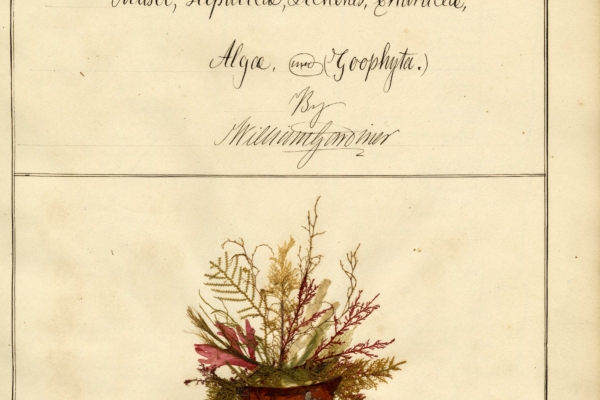 Musci, Hepaticæ, Lichenes,
Algæ, and (Zoophyta.)
By
William Gardiner